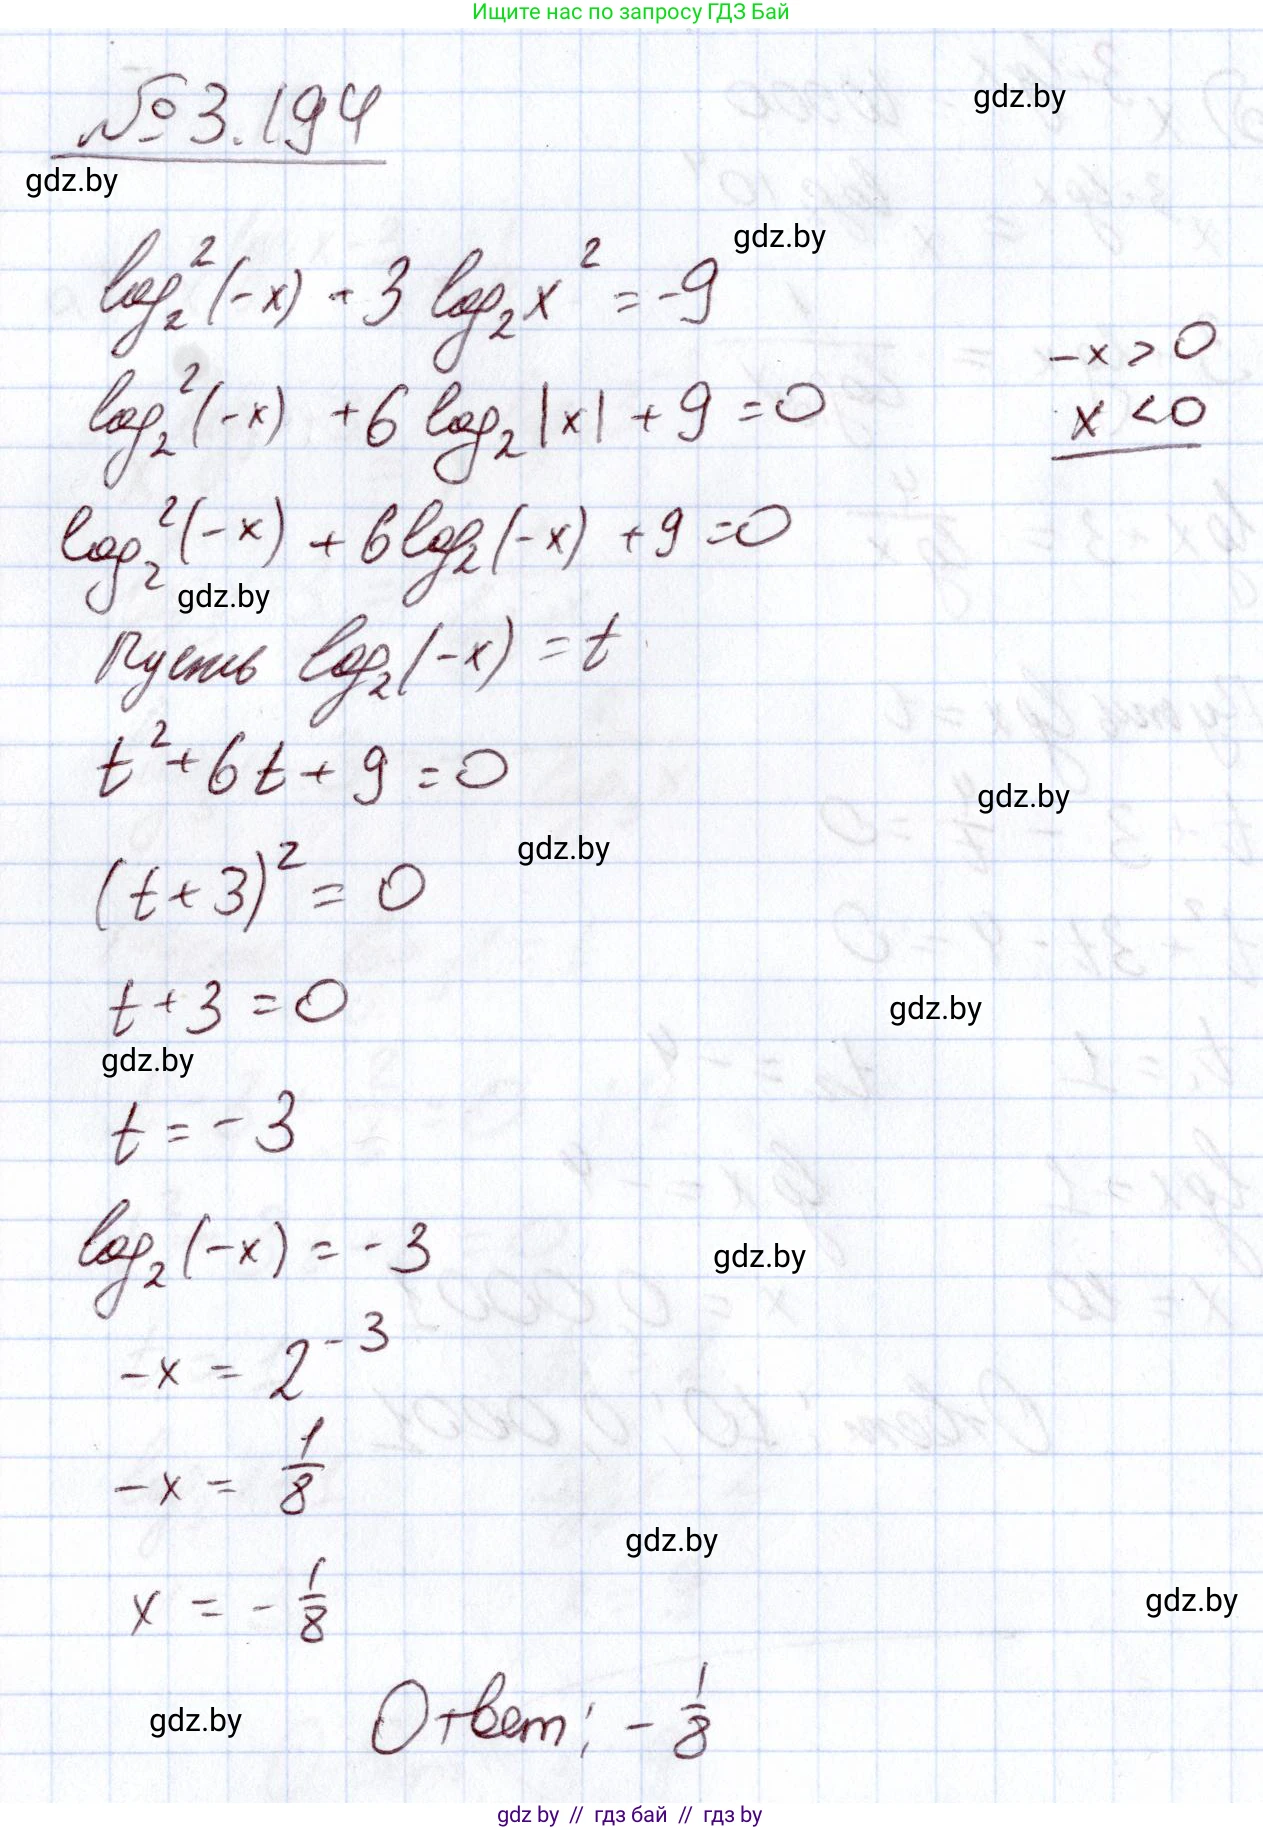 Ищите нас по запросу ГДЗ Бай
gdz.by
№3.194
gdz.by
gdz.by
log₂²(-x) + 3 log₂x² = -9
-x > 0
log₂²(-x) + 6 log₂|x| + 9 = 0
x < 0
log₂²(-x) + 6 log₂(-x) + 9 = 0
gdz.by
Пусть log₂(-x) = t
t² + 6t + 9 = 0
gdz.by
gdz.by
(t + 3)² = 0
t + 3 = 0
gdz.by
gdz.by
t = -3
log₂(-x) = -3
gdz.by
-x = 2⁻³
-x = 1/8
gdz.by
x = -1/8
gdz.by
gdz.by
Ответ: -1/8
gdz by // гдз бай // гдз by